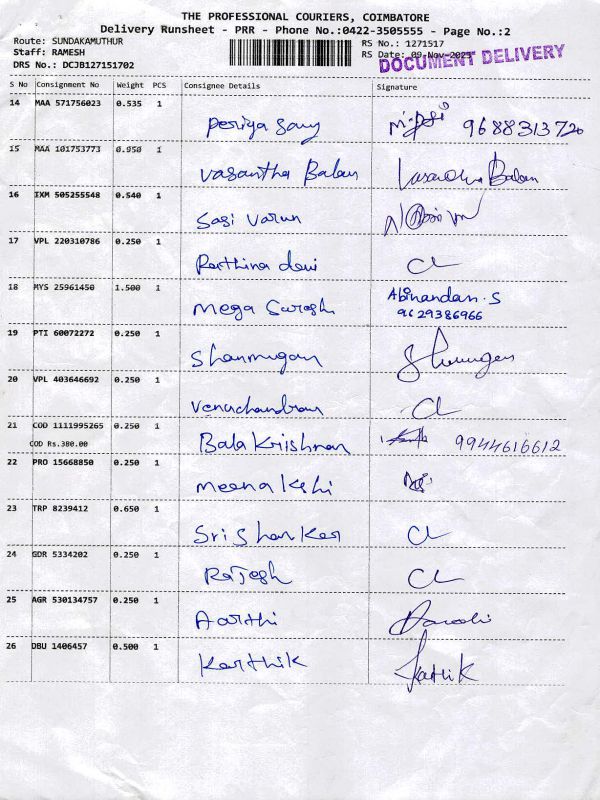 THE PROFESSIONAL COURIERS, COIMBATORE
Delivery Runsheet - PRR - Phone No.:0422-3505555 - Page No.:2
Route: SUNDAKAMUTHUR
Staff: RAMESH
DRS No.: DCJB127151702
RS No.: 1271517
RS Date: 09-Nov-2025
DOCUMENT DELIVERY
S No Consignment No Weight PCS Consignee Details Signature
14 MAA 571756023 0.535 1
Periya Samy 9688313720
15 MAA 101753773 0.950 1
Vasantha Balan
16 IXM 505255548 0.540 1
Sasi Varun
17 VPL 220310786 0.250 1
Rathina devi CL
18 MYS 25961450 1.500 1
Mega Suresh Abinandan.S
9629386966
19 PTI 60072272 0.250 1
Shanmugam
20 VPL 403646692 0.250 1
Venuchandran CL
21 COD 1111995265 0.250 1
COD Rs.380.00
Bala Krishnan 9944616612
22 PRO 15668850 0.250 1
Meena Kshi
23 TRP 8239412 0.650 1
Sri Shanker CL
24 GDR 5334202 0.250 1
Rajesh CL
25 AGR 530134757 0.250 1
Aarthi
26 DBU 1406457 0.500 1
Karthik Karthik